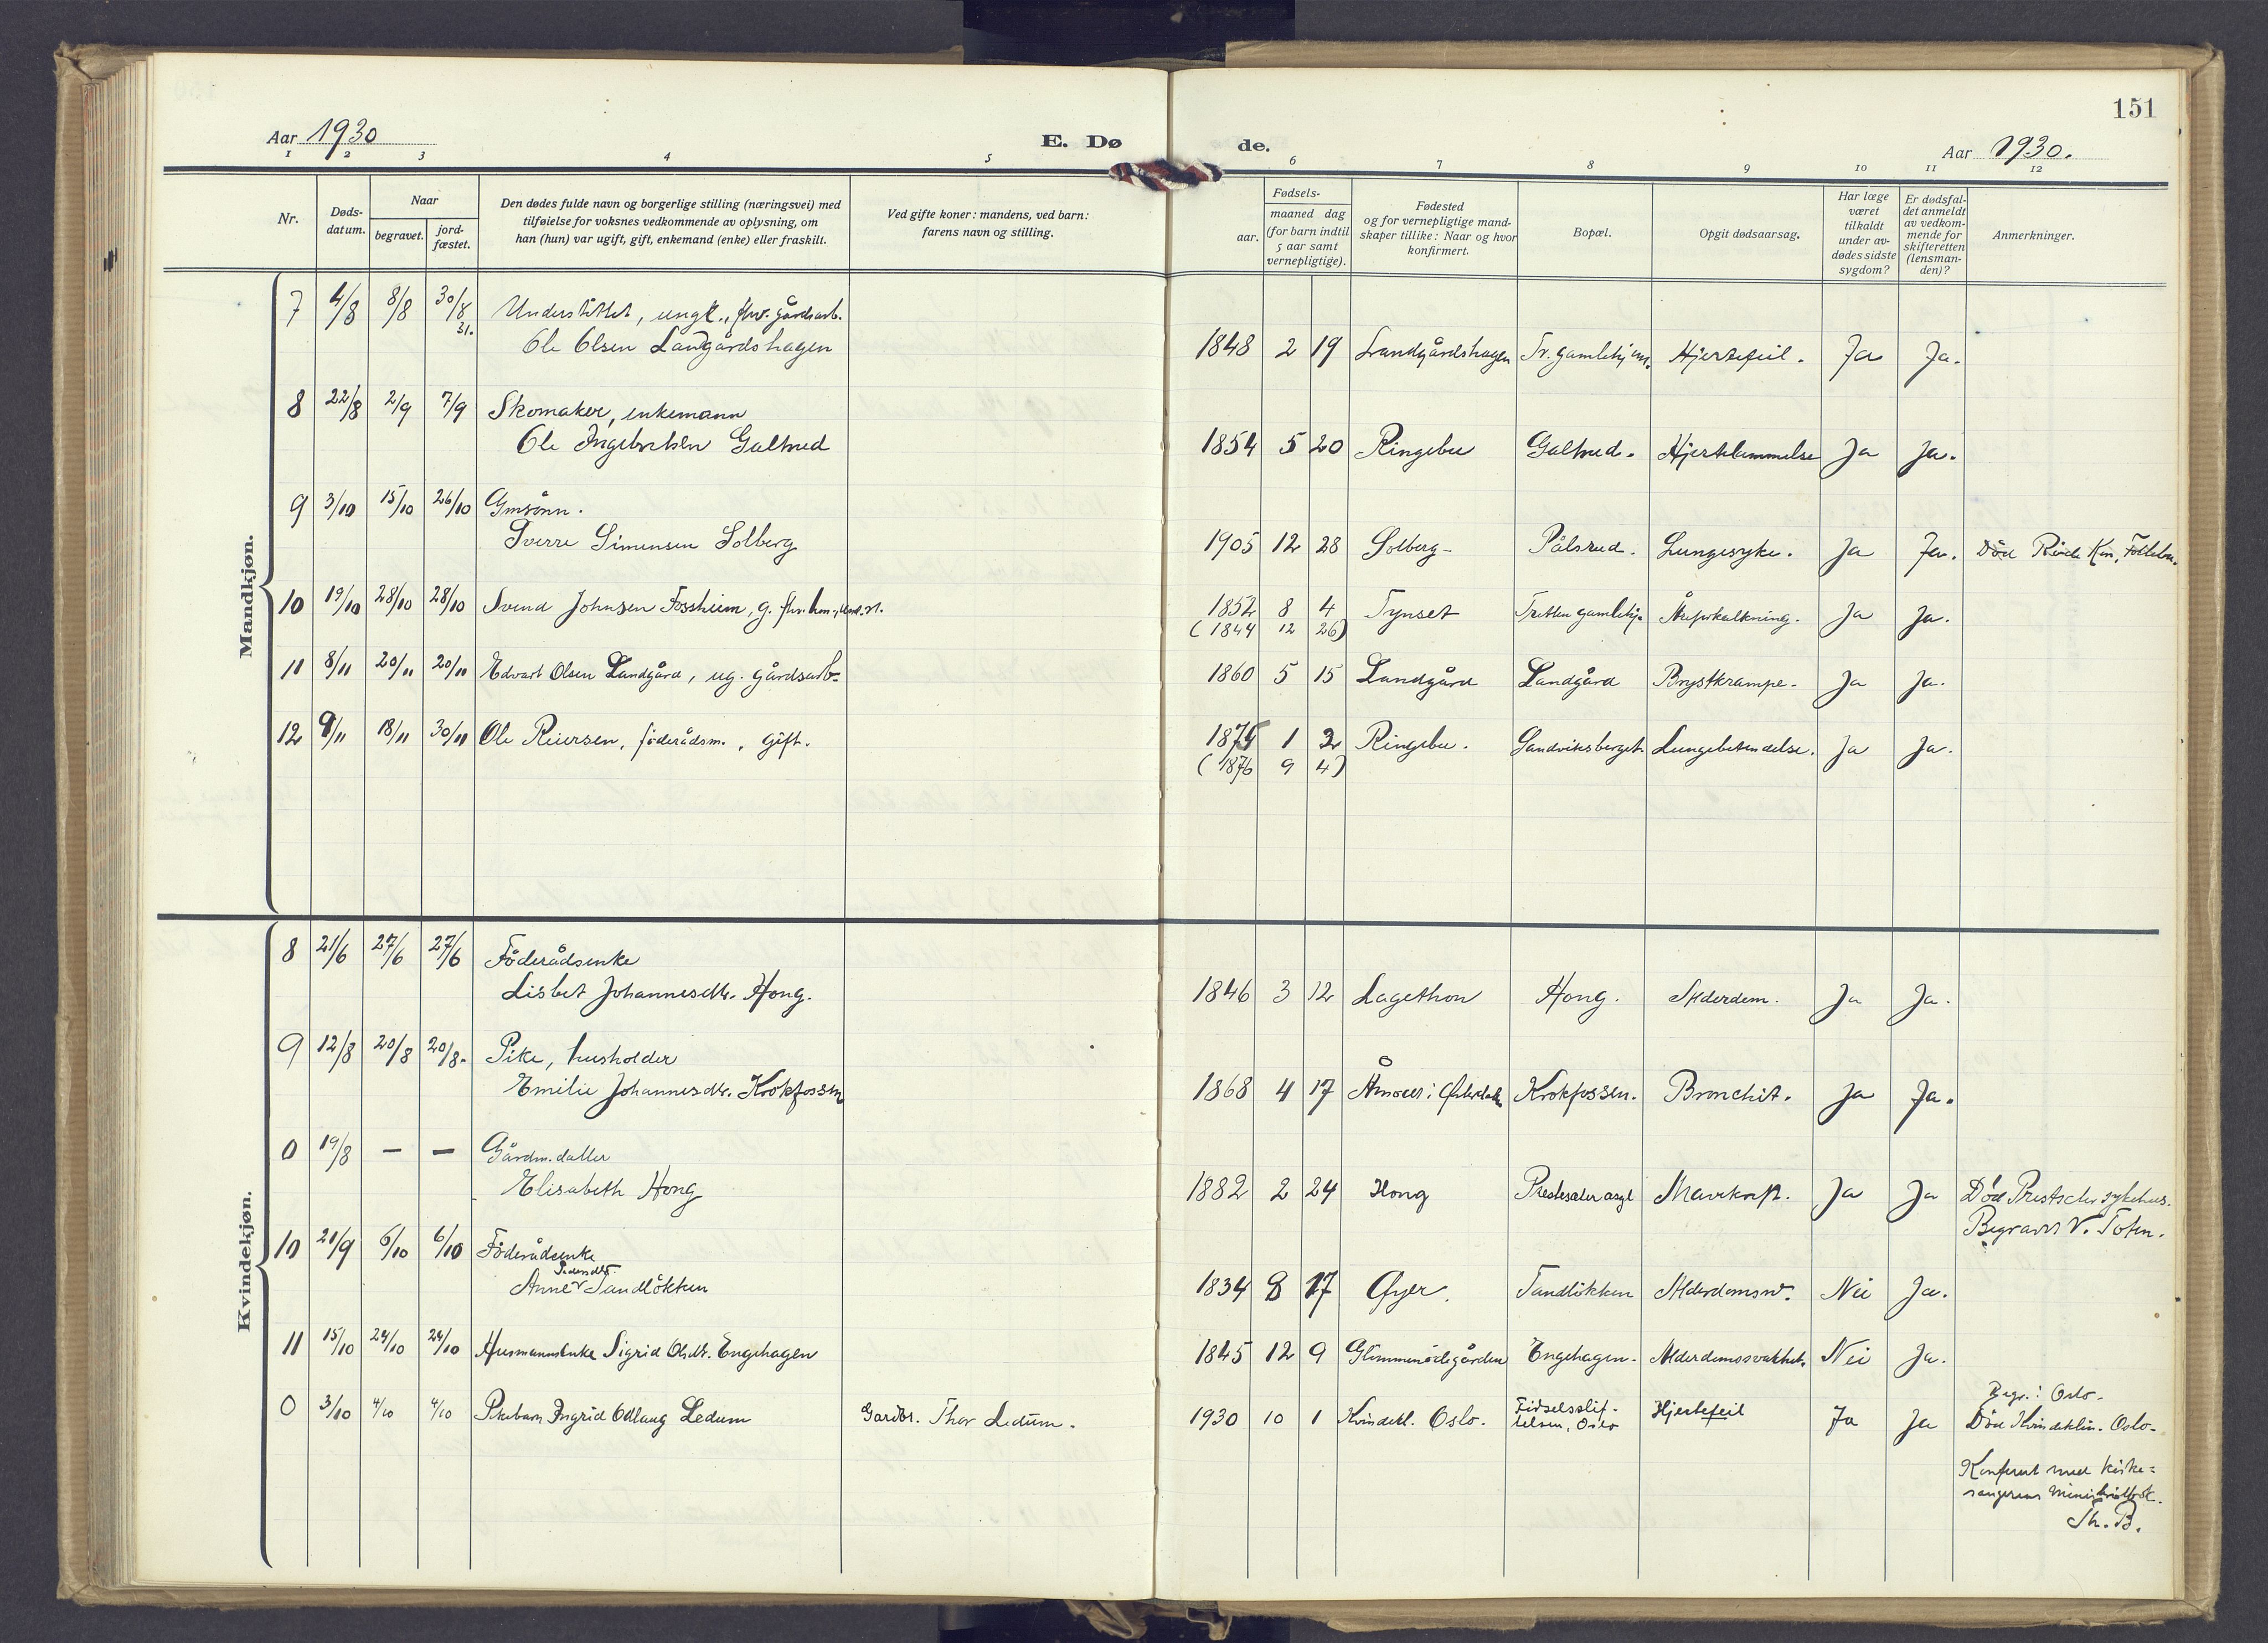 151
Aar 1930
E. Dø
de.
Aar 1930.
1 2 3 4 5 6 7 8 9 10 11 12
Nr.
Døds-
datum.
Naar
begravet.
jord-
fæstet.
Den dødes fulde navn og borgerlige stilling (næringsvei) med
tilføielse for voksnes vedkommende av oplysning, om
han (hun) var ugift, gift, enkemand (enke) eller fraskilt.
Ved gifte koner: mandens, ved barn:
farens navn og stilling.
Fødsels-
aar.
maaned dag
(for barn indtil
5 aar samt
vernepligtige).
Fødested
og for vernepligtige mand-
skaper tillike: Naar og hvor
konfirmert.
Bopæl.
Opgit dødsaarsag.
Har læge
været
tilkaldt
under av-
dødes sidste
sygdom?
Er dødsfal-
det anmeldt
av vedkom-
mende for
skifteretten
(lensman-
den)?
Anmerkninger.
Mandkjøn.
7 4/8 8/8 30/8 Understøttet, ungk., fhv. gårdsarb.
31.
Ole Olsen Landgårdshagen 1848 2 19 Landgårdshagen Tr. gamlehjem. Hjertefeil. Ja Ja.
8 22/8 2/9 7/9 Skomaker, enkemann
Ole Ingebrektsen Galtrud 1854 5 20 Ringebu Galtrud. Hjertelammelse Ja Ja.
9 3/10 15/10 26/10 Gmsønn.
Sverre Simensen Solberg 1905 12 28 Solberg Pålsrud. Lungesyke. Ja Ja. Død Røde Kors, Follebu.
10 19/10 28/10 28/10 Svend Johnsen Fossheim, g. fhv. hm., 1852 8 4 Tynset Tretten gamlehj. Åreforkalkning. Ja Ja.
(1844 12 26)
11 8/11 20/11 20/11 Edvart Olsen Landgård, ug. gårdsarb. 1860 5 15 Landgård Landgård Brystkrampe. Ja Ja.
12 9/11 18/11 30/11 Ole Reiersen, føderådsm., gift. 1875 1 2 Ringebu. Sandviksberget Lungebetendelse. Ja Ja.
(1876 9 4)
Kvindekjøn.
8 21/6 27/6 27/6 Føderådsenke
Lisbet Johannesdtr. Hong. 1846 3 12 Lagethon Hong. Alderdom. Ja Ja.
9 12/8 20/8 20/8. Pike, husholder
Emilie Johannesdtr. Krokfossen 1868 4 17 Åmot i Østerdalen Krokfossen. Bronchit. Ja Ja.
0 19/8 — — Gårdm.datter
Elisabeth Hong 1882 2 24 Hong Presteseter asyl Mavekreft. Ja Ja Død Prestseter sykehus.
Begravet V. Toten.
10 21/9 6/10 6/10 Føderådsenke
Pedersdtr.
Anne Tandløkken 1834 8 17 Øyer. Tandløkken Alderdomsv. Nei Ja.
11 15/10 24/10 24/10 Husmannsenke Sigrid Olsdtr. Engehagen 1845 12 9 Glimmenødegården Engehagen. Alderdomssvakhet. Nei Ja.
Begr. i Oslo.
0 3/10 4/10 4/10 Pikebarn Ingrid Odlaug Ledum Gardbr. Thor Ledum. 1930 10 1 Kvindekl. Oslo. Fødselsstif-
telsen, Oslo Hjertefeil Ja Ja Død Kvindeklin. Oslo.
Konferert med kirke-
sangerens ministerialbok.
Th. B.